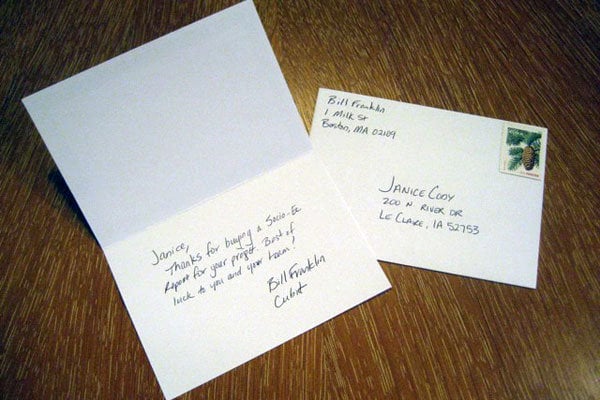 Janice,
Thanks for buying a Socio-Ec
Report for your project. Best of
luck to you and your team!
Bill Franklin
Cubit
Bill Franklin
1 Milk St
Boston, MA 02109
JANICE CODY
200 N RIVER DR
LE CLAIRE, IA 52753